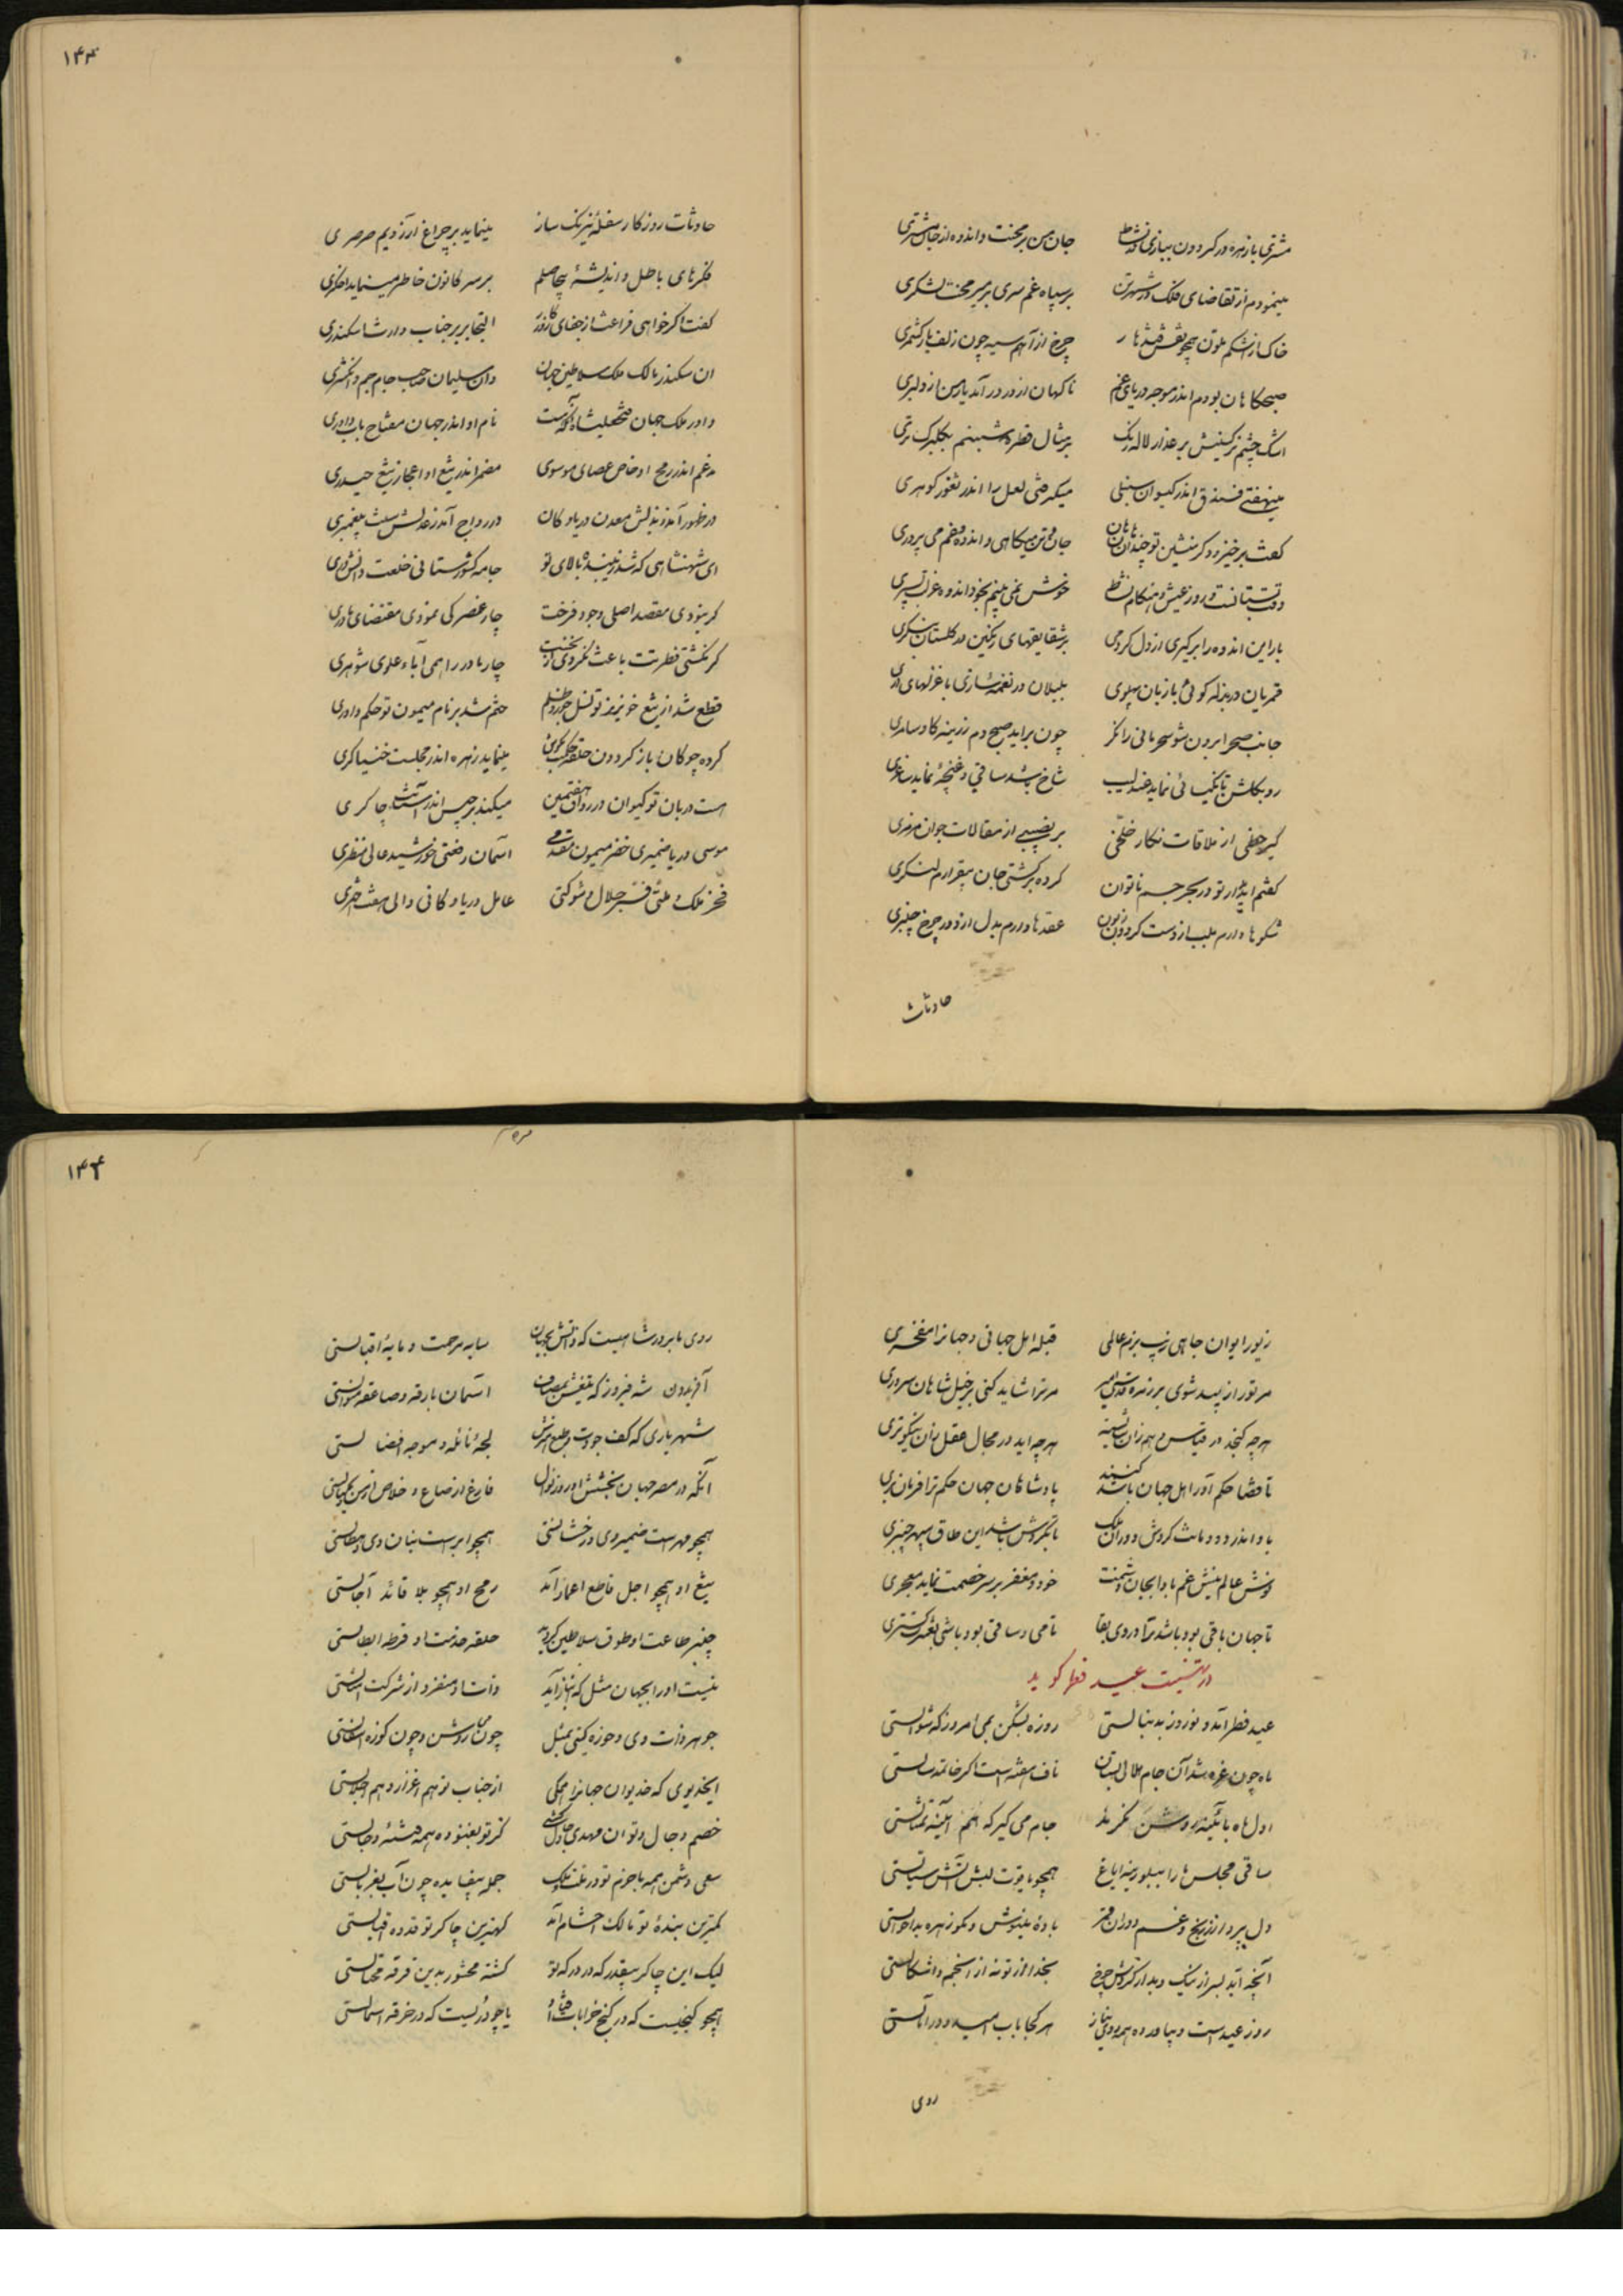 مشتری با زهره در گردون ببازی و نشاط جان من بر محنت و اندوه از جان مشتری
مینمودم از تقاضای فلک در شهر تن بر سپاه غم سری بر میر محنت لشکری
خاک از اشکم ملون همچو نقش چرخ از آهم سیه چون زلف یار کشمری
صبحگاهان بودم اندر موجه دریای غم ناگهان از در درآمد یار من از دلبری
اشک چشم نرگسینش بر عذار لاله رنگ بر مثال قطره شبنم بگلبرک تری
مینهفتی فندق اندر گیسوان سنبلی میگرفتی لعل را اندر ثغور گوهری
گفت برخیز و دگر منشین تو چندان جان و تن میکاهی و اندوه و غم می پروری
وقت بستانست و روز عیش و هنگام نشاط خوش نمی بینم بخود اندوه و غم
بار این اندوه را برگیری از دل گر دمی بر شقایقهای رنگین در گلستان بنگری
قمریان در بذله گوئی با زبان پهلوی بلبلان در نغمه سازی با غزلهای دری
جانب صحرا برون شو سحر مانی را نگر چون براید صبحدم زرینه گاو سامری
رو بگلشن تا نماید عندلیب شاخ باشد ساقی و غنچه نماید ساغری
گیر حظی از ملاقات نگار خلخی بر نصیبی از مقالات جوان
گفتم ایدلدار تو در بحر جسم ناتوان کرده بر کشتی جان بیقرارم لنگری
شکوها دارم بلب از دست گردون زبون عقدها دارم بدل از دور چرخ چنبری
حادثات
۱۴۳
حادثات روزگار سفله نیرنگ ساز مینماید بر چراغ آرزویم صرصری
فکرهای باطل و اندیشهٔ بیحاصلم بر سر کانون خاطر مینماید اخگری
گفت اگر خواهی فراغت از جفای التجا بر بر جناب داراسکندری
ان سکندر مالک ملک سلاطین جهان وان سلیمان صاحب جام جم و انگشتری
داور ملک جهان فتحعلیشاه آنکه هست نام او اندر جهان مفتاح باب داوری
مدغم اندر رمح او خاص عصای موسوی مضمر اندر تیغ او اعجاز تیغ حیدری
در ظهور آمد ز بذلش معدن دریا و کان در رواج آمد ز عدلش ملت پیغمبری
ای شهنشاهی که شد زیبنده بالای تو جامه کشورستانی خلعت دانشوری
گر نبودی مقصد اصلی وجود فرخت چار عنصر کی نمودی مقتضای مادری
گر نگشتی فطرتت باعث نکردی چار مادر را همی آباء علوی شوهری
قطع شد از تیغ خونریز تو نسل جور و ظلم ختم شد بر نام میمون تو حکم داوری
کرده چوگان باز گردون حلقه مینماید زهره اندر مجلست خنیاگری
هست دربان تو کیوان در رواق هفتمین میکند برجیس اندر آستانت چاکری
موسی دریا ضمیری خضر میمون مقدمی آسمان رفعتی خورشید عالی منظری
فخر ملک و ملتی فر جلال و شوکتی عامل دریا و کانی والی هفت اختری
زیور ایوان جاهی زیب بزم عالمی قبله اهل جهانی و جهانرا مفخری
مر ترا زیبد شوی بر زمره مر ترا شاید کنی بر خیل شاهان سروری
هرچه گنجد در قیاس وهم زان هرچه اید در مجال عقل زان نیکوتری
تا قضا حکم آور اهل جهان باشد کنند پادشاهان جهان حکم ترا فرمانبری
باد اندر دودمانت گردش دوران ملک تا بگردش باشد این طاق سپهر چنبری
نوش عالم نیش غم بادا بجان دشمنت خود و مغفر بر سر خصمت نماید معجری
تا جهان باقی بود باشد ترا در وی بقا تا می و ساقی بود باشی
در تهنیت عید فطر گوید
عید فطر آمد و نوروز بدنبالستی روزه بشکن بمی امروز که شوالستی
ماه چون غره شد آن جام هلالی بستان ناف هفته است اگر خاتمه سالستی
اول ماه بآئینه روشن نگرند جام می گیر که هم آینه تمثالستی
ساقی مجلس ما را ببلورینه ایاغ همچو یاقوت لبش آتش سیالستی
دل بپرداز ز رنج و غم دوران و قمر باده مینوش و مگو زهره بد احوالستی
آنچه آید بسر از نیک و بد از گردش چرخ بخدا از تو نه از انجم و اشکالستی
روز عید است و بیاورده همه روی نیاز هر کجا باب امید و در آمالستی
روی
۱۴۴
روی ما بر در شاهیست که ذاتش بجهان سایه مرحمت و مایهٔ اقبالستی
آفریدون شه فیروز که تیغش بمصاف آسمان بارقه و صاعقه منوالستی
شهریاری که کف جودت و طبع لجهٔ نائله و موجه افضالستی
آنکه در مصر جهان بخشش او روز نوال فارغ از صاع و خلاص از من و مکیالستی
همچو مهر است ضمیر وی و رخشانستی همچو ابر است بنان وی و هطالستی
تیغ او همچو اجل قاطع اعمار آمد رمح او همچو بلا قائد آجالستی
چنبر طاعت او طوق سلاطین گردید حلقه خدمت او قرطه ابطالستی
نیست او را بجهان مثل که انباز آید ذات او منفرد از شرکت امثالستی
جوهر ذات وی و حوزه گیتی بمثل چون می روشن و چون کوزه
ایخدیوی که خدیوان جهانرا همگی از جناب تو هم اعزاز و هم اجلالستی
خصم دجال و توان مهدی دجال کشی کز تو بغنوده همه فتنهٔ دجالستی
سعی دشمن همه با حزم تو در جمله بیفایده چون آب بغربالستی
کمترین بندهٔ تو مالک احشام آمد کهترین چاکر تو قدوه اقیالستی
لیک این چاکر بیقدر که در درگه تو گشته محشور بدین فرقه
همچو گنجیست که در کنج خرابات یا چو دریست که در خرقه اسمالستی